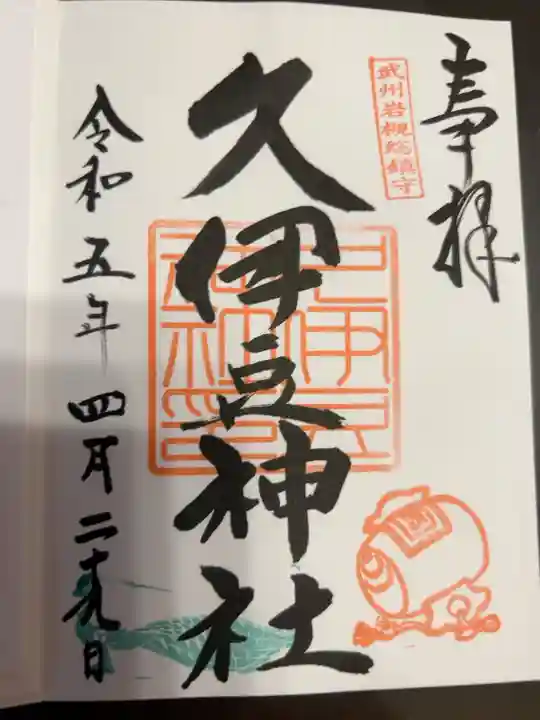 奉拝
武州岩槻総鎮守
久伊豆神社
令和五年四月二十九日